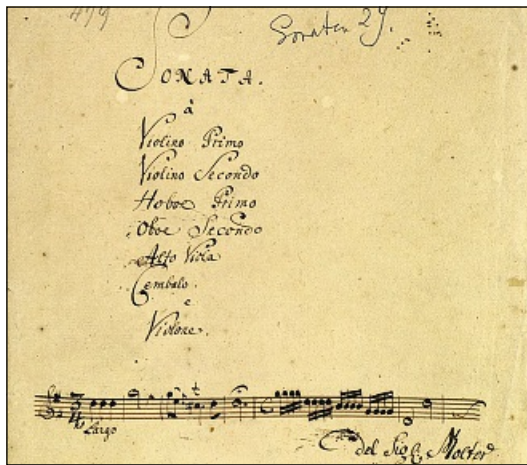 Sonaten 29.
SONATA.
à
Violino Primo
Violino Secondo
Hoboe Primo
Oboe Secondo
Alto Viola
Cembalo.
e
Violone.
3/4
Largo
del Sig. Molter